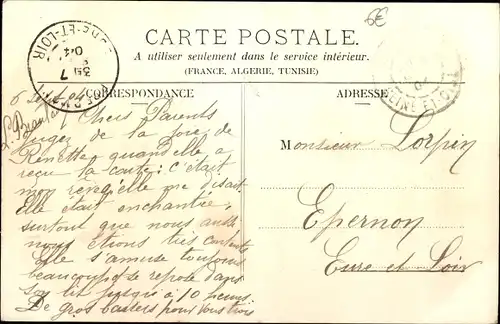 6€
E-ET-LOIR
04
CARTE POSTALE.
A utiliser seulement dans le service intérieur.
(FRANCE, ALGERIE, TUNISIE)
CORRESPONDANCE
ADRESSE
6 Sept 04
Chers Parents
jugez de la joie de
Renette quand elle a
reçu la carte : c'était
mon rêve qu'elle me disait
Elle était enchantée,
surtout que nous
nous étions très contents
elle s'amuse toujours
beaucoup et se repose dans
son lit jusqu'à 10 heures.
De gros baisers pour vous trois
Monsieur Lorpin
Epernon
Eure et Loir